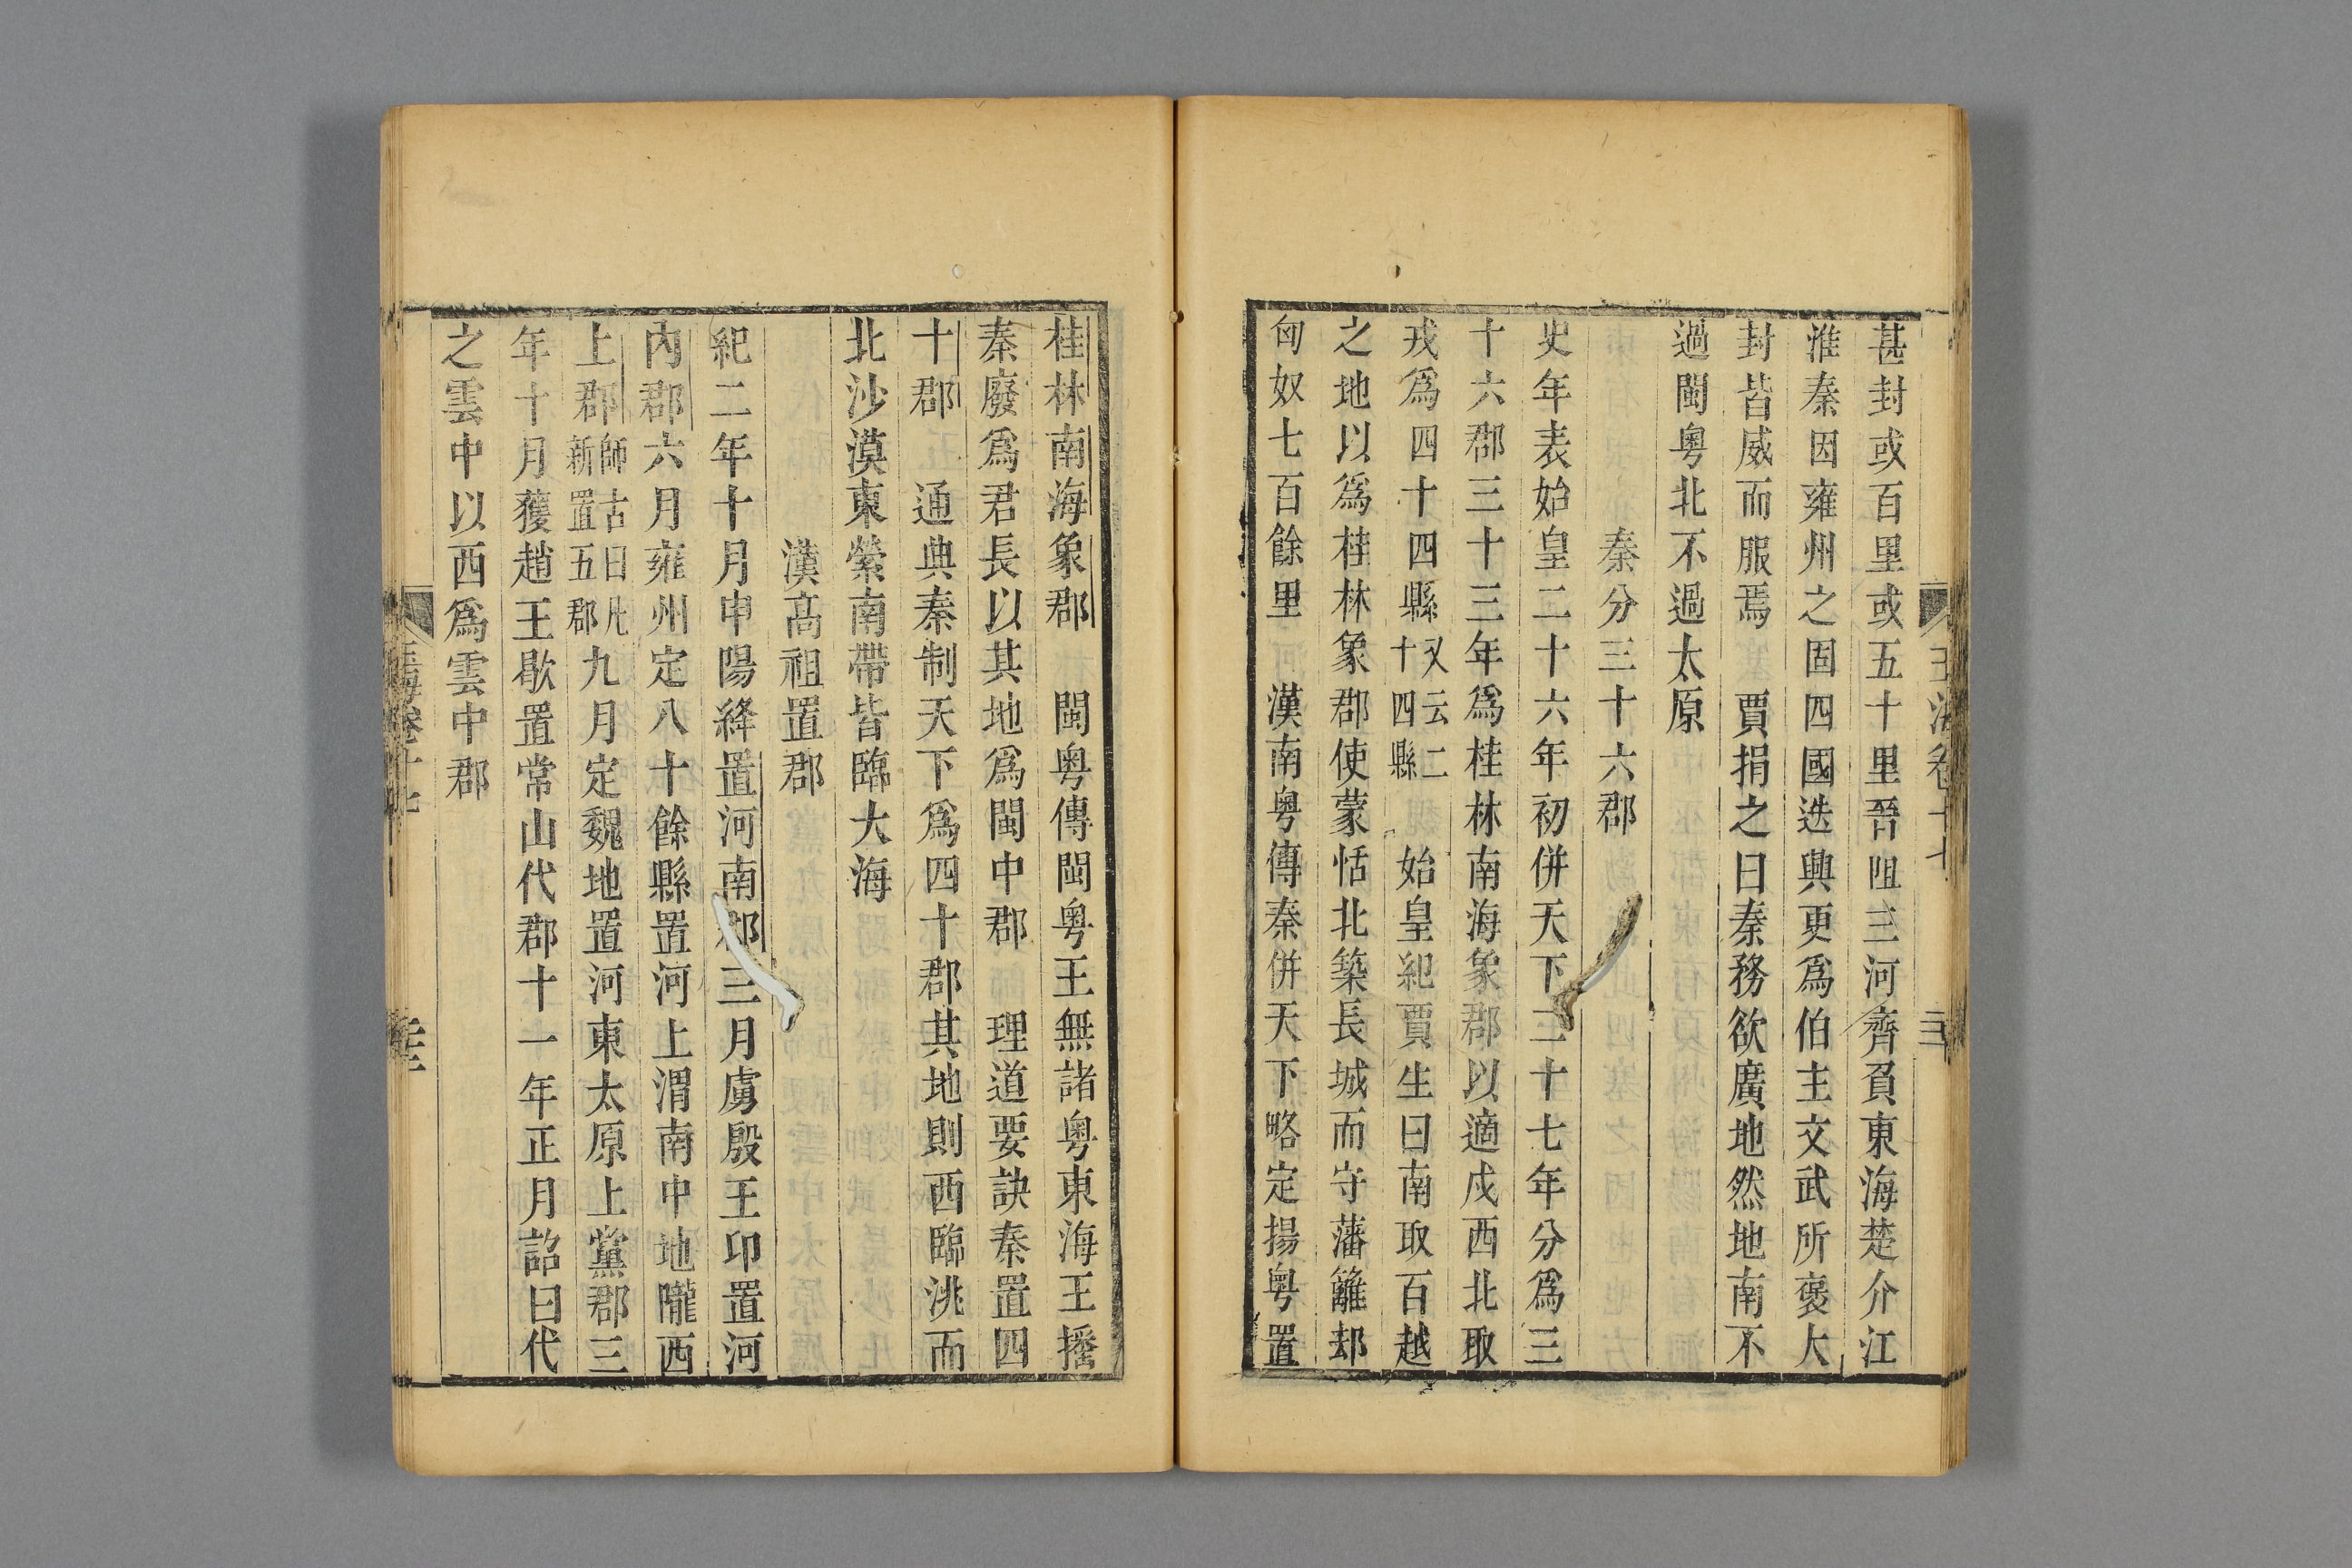 甚封或百里或五十里晉阻三河齊負東海楚介江
淮秦因雍州之固四國迭興更爲伯主文武所褒大
封皆威而服焉　賈捐之曰秦務欲廣地然地南不
過閩粵北不過太原
秦分三十六郡
史年表始皇二十六年初併天下二十七年分爲三
十六郡三十三年爲桂林南海象郡以適戍西北取
戎爲四十四縣又云二十四縣　始皇紀賈生曰南取百越
之地以爲桂林象郡使蒙恬北築長城而守藩籬却
匈奴七百餘里　漢南粵傳秦併天下略定揚粵置
桂林南海象郡　閩粵傳閩粵王無諸粵東海王搖
秦廢爲君長以其地爲閩中郡　理道要訣秦置四
十郡　通典秦制天下爲四十郡其地則西臨洮而
北沙漠東縈南帶皆臨大海
漢高祖置郡
紀二年十月申陽絳置河南郡三月虜殷王卬置河
內郡六月雍州定八十餘縣置河上渭南中地隴西
上郡師古曰凡新置五郡九月定魏地置河東太原上黨郡三
年十月獲趙王歇置常山代郡十一年正月詔曰代
之雲中以西爲雲中郡
玉海卷十七
玉海卷十七